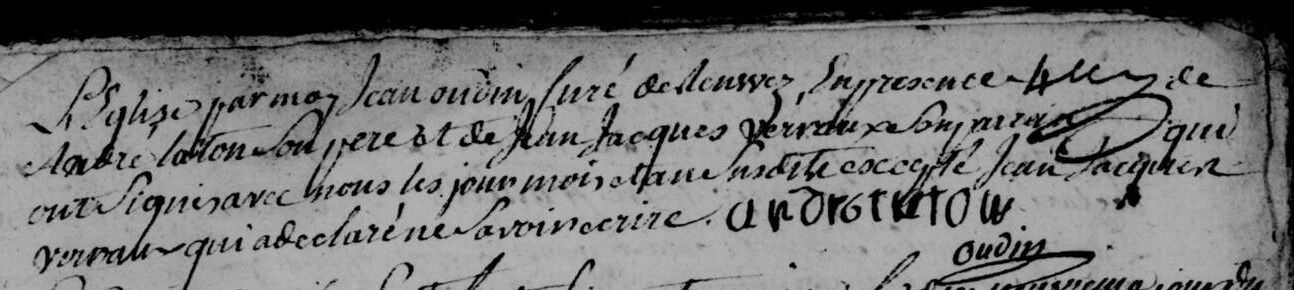 L'Eglise par moy Jean oudin Curé de Renwez, En presence de
André laton Son pere et de Jean Jacques Vervaux Son parrain qui
ont Signés avec nous les jour mois et an Susdits excepté Jean Jacques
vervaux qui a declaré ne Savoir ecrire. andre laton
oudin